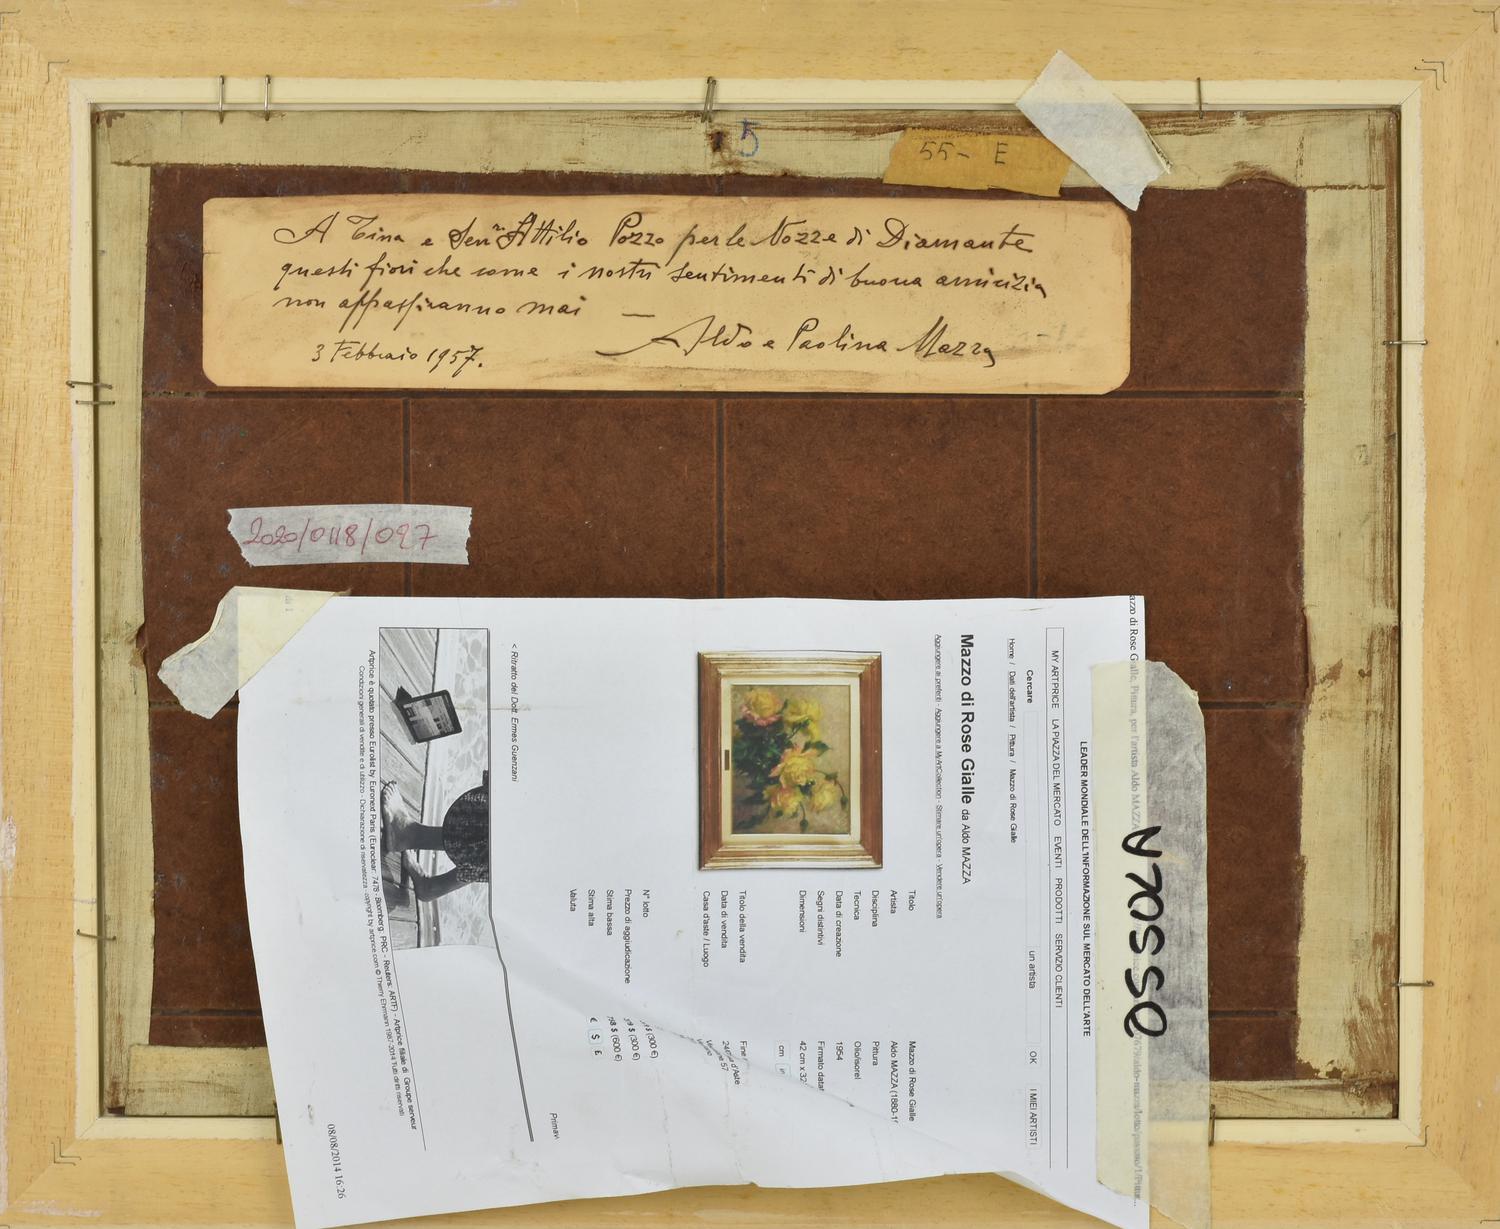 5
55- E
A Tina e Sen.re Attilio Pozzo per le Nozze di Diamante
questi fiori che come i nostri sentimenti di buona amicizia
non appassiranno mai —
Aldo e Paolina Mazza
3 Febbraio 1957.
2020/0118/027
OSSOLA
LEADER MONDIALE DELL'INFORMAZIONE SUL MERCATO DELL'ARTE
MY ARTPRICE LA PIAZZA DEL MERCATO EVENTI PRODOTTI SERVIZIO CLIENTI
Cercare un artista OK I MIEI ARTISTI
Home / Dati dell'artista / Pittura / Mazzo di Rose Gialle
Mazzo di Rose Gialle da Aldo MAZZA
Aggiungere ai preferiti - Aggiungere a MyArtCollection - Stimare un'opera - Vendere un'opera
Titolo Mazzo di Rose Gialle
Artista Aldo MAZZA (1880-1
Disciplina Pittura
Tecnica Olio/isorel
Data di creazione 1954
Segni distintivi Firmato data
Dimensioni 42 cm x 32
cm in
Titolo della vendita Fine
Data di vendita 24
Casa d'aste / Luogo
N° lotto 57
Prezzo di aggiudicazione $ (300 €)
Stima bassa $ (300 €)
Stima alta $ (600 €)
Valuta € $ £
< Ritratto del Dott. Ermes Guenzani
Artprice è quotato presso Eurolist by Euronext Paris (Euroclear: 7478 - Bloomberg: PRC - Reuters: ARTF) - Artprice filiale di Groupe serveur
Condizioni generali di vendite e di utilizzo - Dichiarazione di riservatezza - copyright by artprice.com © Thierry Ehrmann 1987-2014 Tutti diritti riservati
08/08/2014 16:26